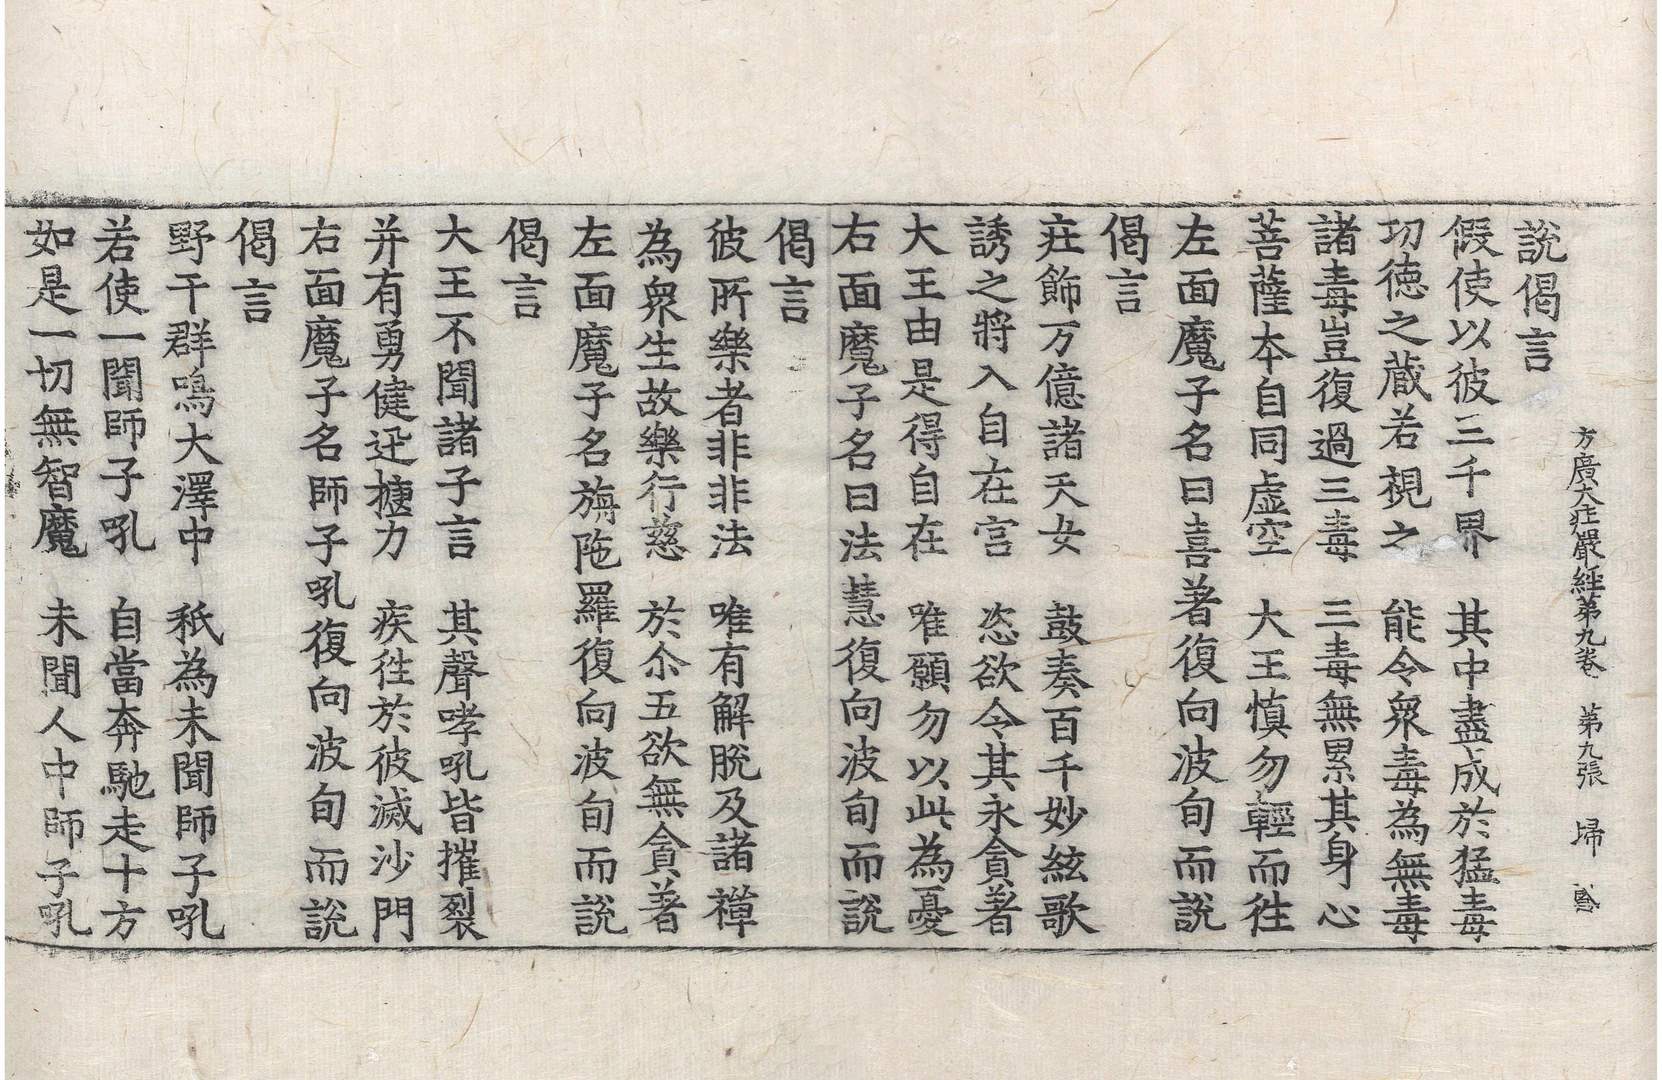 方廣大庄嚴經第九卷　第九張　埽
說偈言
假使以彼三千界　其中盡成於猛毒
功德之藏若視之　能令衆毒為無毒
諸毒豈復過三毒　三毒無累其身心
菩薩本自同虛空　大王慎勿輕而徃
左面魔子名曰喜著復向波旬而說
偈言
庄飾万億諸天女　鼓奏百千妙絃歌
誘之將入自在宮　恣欲令其永貪著
大王由是得自在　唯願勿以此為憂
右面魔子名曰法慧復向波旬而說
偈言
彼所樂者非非法　唯有解脫及諸禪
為衆生故樂行慈　於尒五欲無貪著
左面魔子名旃陁羅復向波旬而說
偈言
大王不聞諸子言　其聲哮吼皆摧裂
并有勇健迅揵力　疾徃於彼滅沙門
右面魔子名師子吼復向波旬而說
偈言
野干群鳴大澤中　秖為未聞師子吼
若使一聞師子吼　自當奔馳走十方
如是一切無智魔　未聞人中師子吼